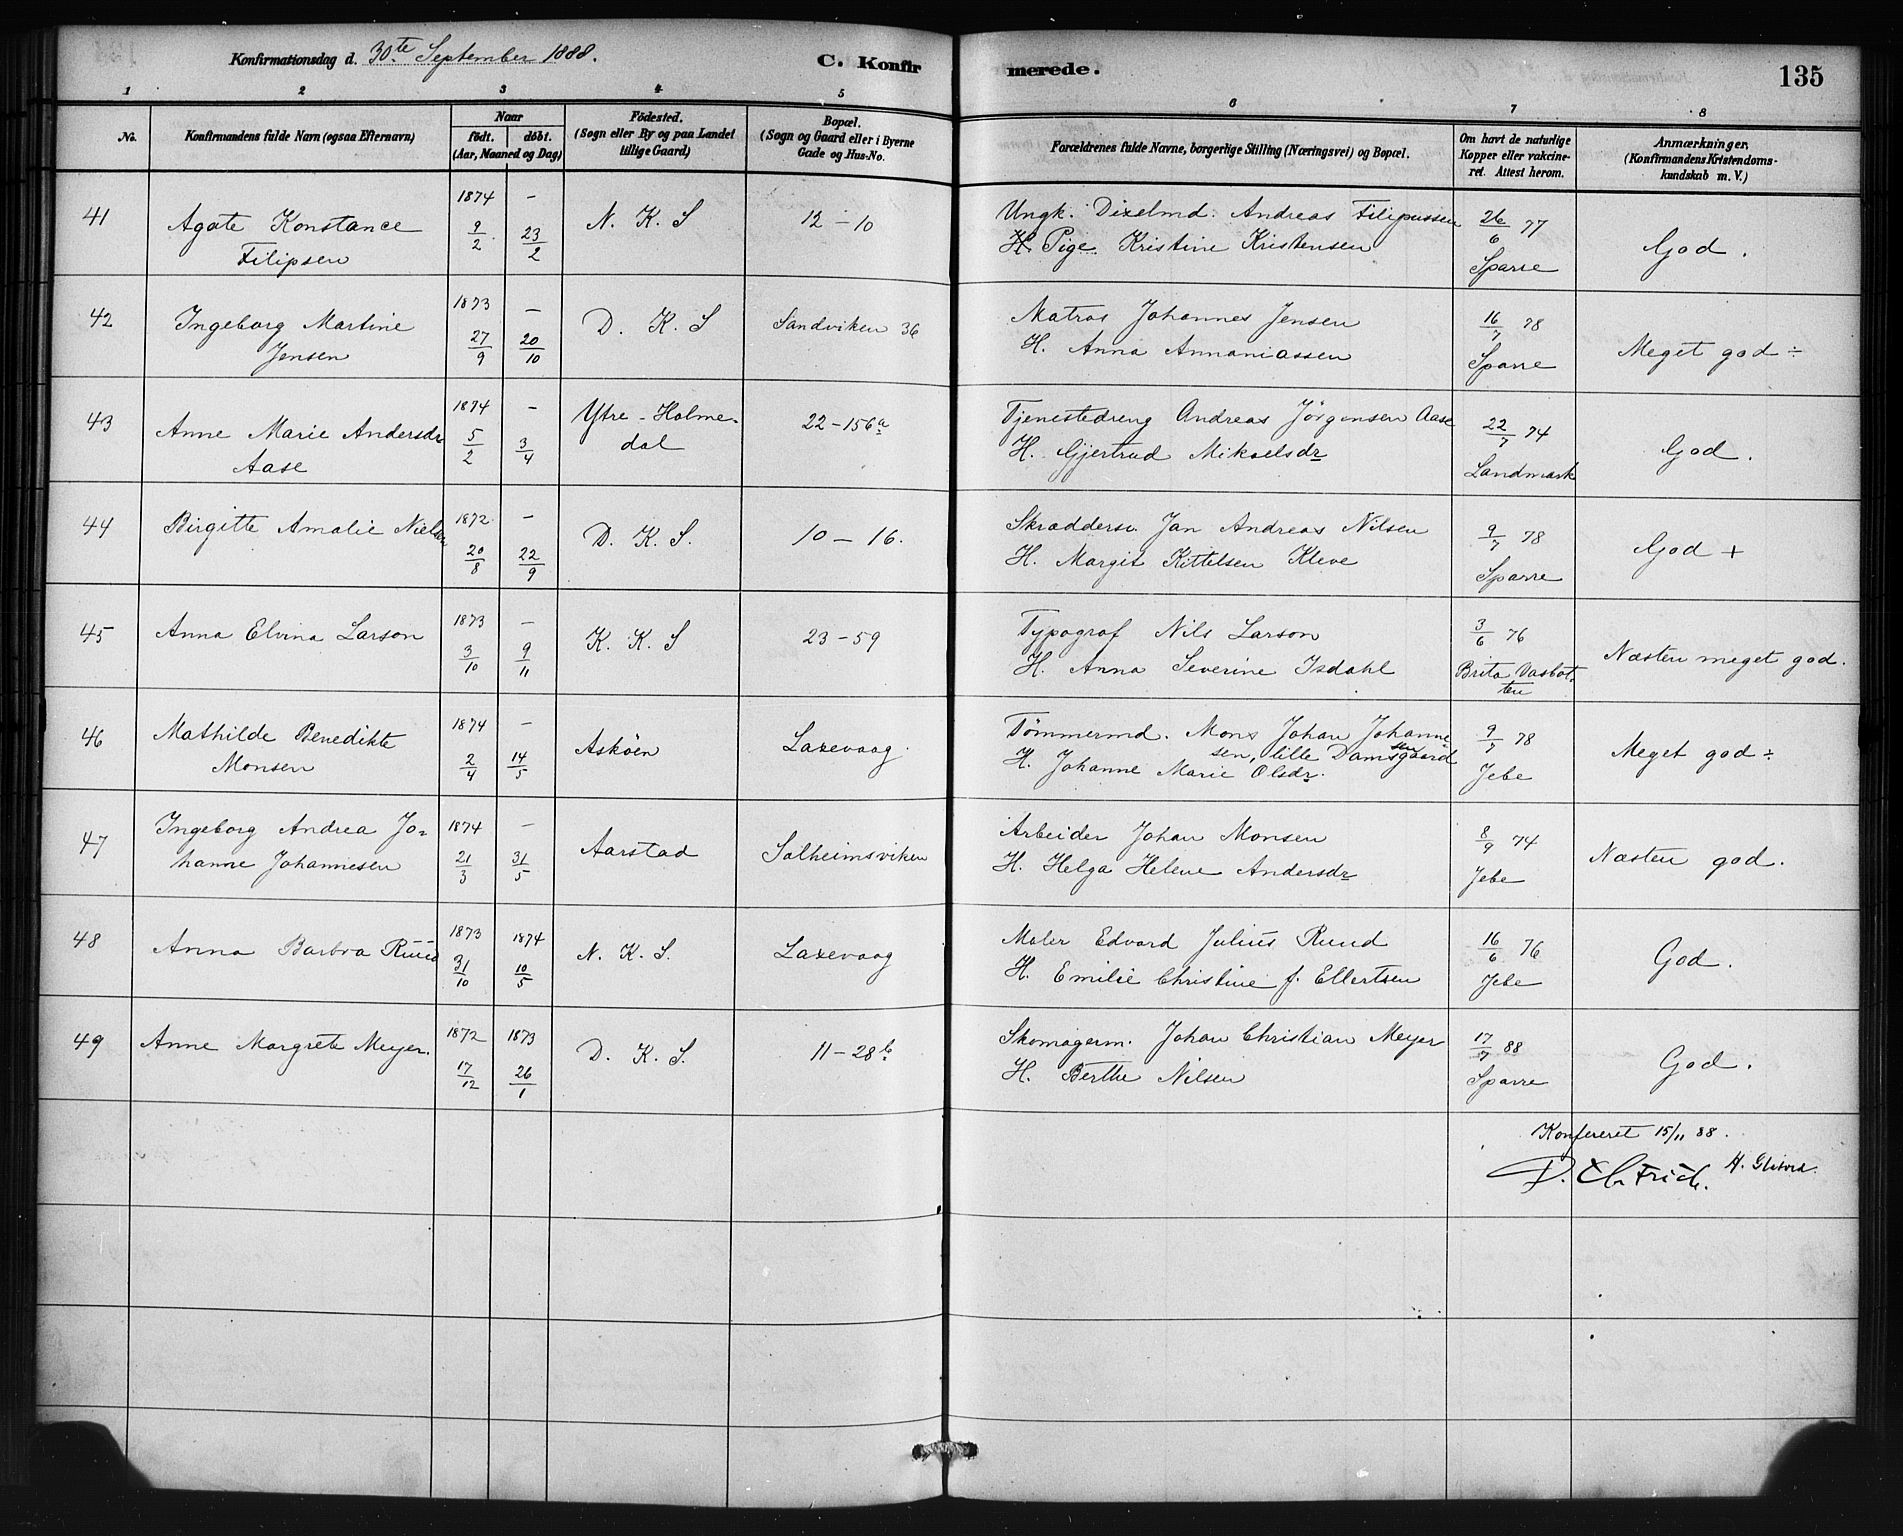 Konfirmationsdag d. 30.te September 1888.
C. Konfirmerede.
135
1 2 3 4 5 6 7 8
No.
Konfirmandens fulde Navn (ogsaa Efternavn)
Naar
födt. döbt.
(Aar, Maaned og Dag)
Födested.
(Sogn eller By og paa Landet
tillige Gaard)
Bopæl.
(Sogn og Gaard eller i Byerne
Gade og Hus-No.
Forældrenes fulde Navne, borgerlige Stilling (Næringsvei) og Bopæl.
Om havt de naturlige
Kopper eller vakcine-
ret. Attest herom.
Anmærkninger,
(Konfirmandens Kristendoms-
kundskab m. V.)
41 Agate Konstance
Filipsen
1874 —
9/2 23/2
N. K. S
12 — 10
Ungk. Dixelmd. Andreas Filipussen
H. Pige Kristine Kristensen
26/6 77
Sparre
God.
42 Ingeborg Martine
Jensen
1873 —
27/9 20/10
D. K. S
Sandviken 36
Matros Johannes Jensen
H. Anna Annaniassen
16/7 78
Sparre
Meget god ÷
43 Anne Marie Andersdr
Aase
1874 —
5/2 3/4
Ytre - Holme-
dal
22 - 156a
Tjenestedreng Andreas Jörgensen Aase
H. Gjertrud Mikaelsdr
22/7 74
Landmark
God.
44 Birgitte Amalie Nielsen
1872 —
20/8 22/9
D. K. S.
10 — 16.
Skræddersv. Jan Andreas Nilsen
H. Margit Kittelsen Kleve
9/7 78
Sparre
God +
45 Anna Elvina Larson
1873 —
3/10 9/11
K. K. S
23 - 59
Typograf Nils Larson
H. Anna Severine Isdahl
3/6 76
Brita Vasbot-
ten
Næsten meget god.
46 Mathilde Benedikte
Monsen
1874 —
2/4 14/5
Asköen
Laxevaag.
Tömmermd. Mons Johan Johanne
sen, lille Damsgaard
H. Johanne Marie Olsdr.
9/7 78
Jebe
Meget god ÷
47 Ingeborg Andrea Jo-
hanne Johannesen
1874 —
21/3 31/5
Aarstad
Solheimsviken
Arbeider Johan Monsen
H. Helga Helene Andersdr
8/9 74
Jebe
Næsten god.
48 Anna Barbra Ruud
1873 1874
31/10 10/5
N. K. S.
Laxevaag
Maler Edvard Julius Ruud
H. Emilie Christine f. Ellertsen
16/6 76
Jebe
God.
49 Anne Margrete Meyer.
1872 1873
17/12 26/1
D. K. S.
11 - 28b
Skomagerm. Johan Christian Meyer
H. Berthe Nilsen
17/7 88
Sparre
God.
Konfereret 15/11 88.